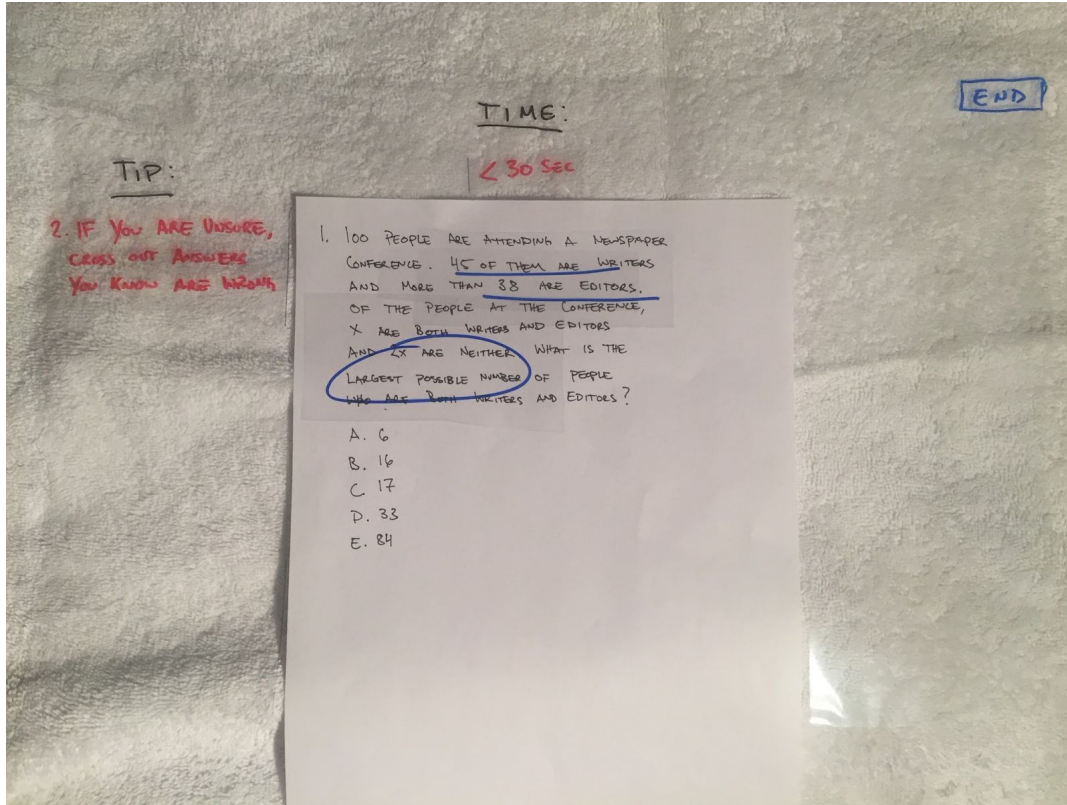 TIME:
END
< 30 SEC
TIP:
2. IF YOU ARE UNSURE,
CROSS OUT ANSWERS
YOU KNOW ARE WRONG
1. 100 PEOPLE ARE ATTENDING A NEWSPAPER
CONFERENCE. 45 OF THEM ARE WRITERS
AND MORE THAN 38 ARE EDITORS.
OF THE PEOPLE AT THE CONFERENCE,
X ARE BOTH WRITERS AND EDITORS
AND 2X ARE NEITHER WHAT IS THE
LARGEST POSSIBLE NUMBER OF PEOPLE
WHO ARE BOTH WRITERS AND EDITORS?
A. 6
B. 16
C 17
D. 33
E. 84